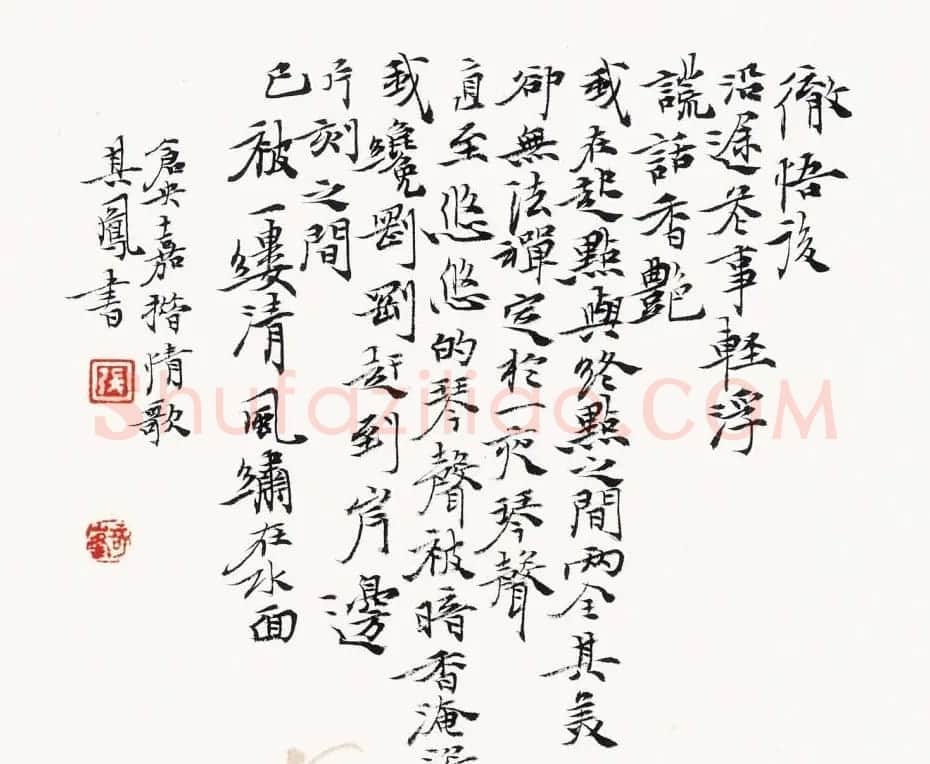 徹悟後
沿途茶事輕浮
謊話香艷
我在起點與終點之間兩全其美
卻無法禪定於一夜琴聲
直至悠悠的琴聲被暗香淹沒
我纔剛剛趕到岸邊
片刻之間
已被一縷清風繡在水面
倉央嘉措情歌
其鳳書
Shufaziliao.COM